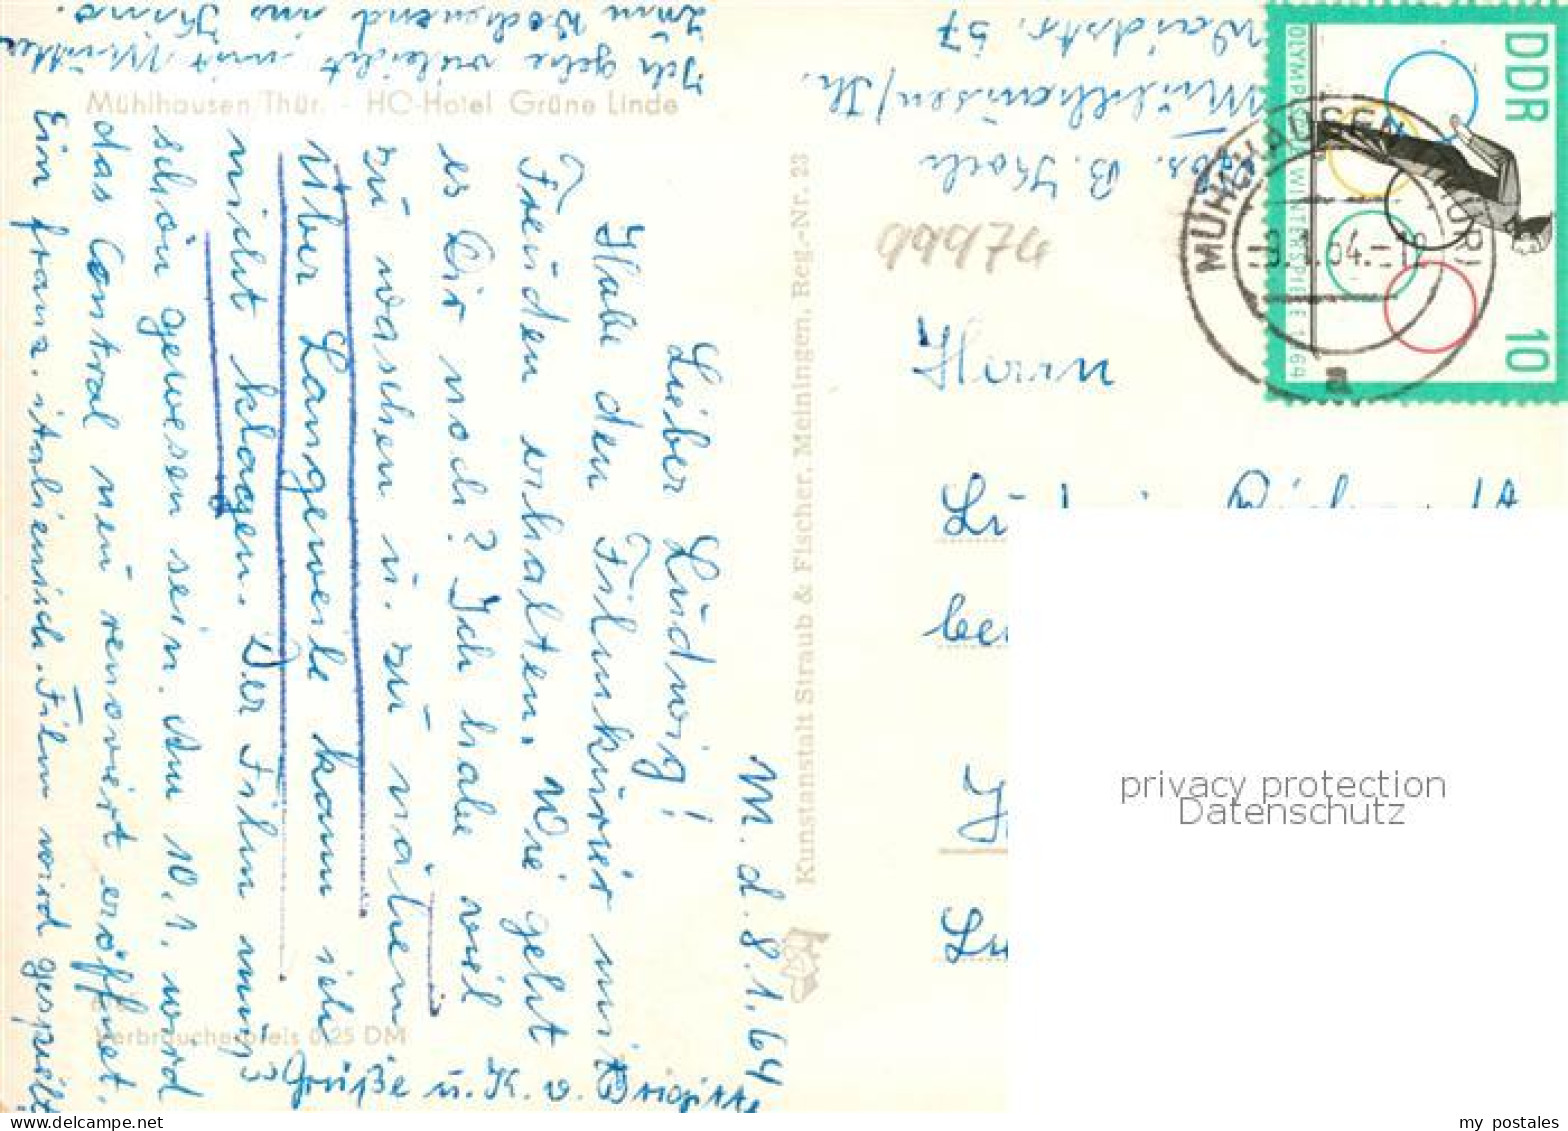 M. d. 8.1.64
Lieber Ludwig!
Habe den Filmkurier mit
Freuden erhalten. Wie geht
es Dir noch? Ich habe viel
zu waschen u. zu nähen.
Über Langeweile kann ich
nicht klagen. Der Film muß
schön gewesen sein. Am 10.1. wird
das Central neu renoviert eröffnet.
Ein franz. italienisch. Film wird gespielt.
Ich gehe vieleicht mit Mutter
zum Wochenend ins Kino.
Grüße u. K. v. Brigitte
Mühlhausen/Thür. - HO-Hotel Grüne Linde
Verbraucherpreis 0,25 DM
Kunstanstalt Straub & Fischer, Meiningen. Reg.-Nr. 23
Abs. B. Koch
Mühlhausen/Th.
Waidstr. 57
99974
DDR 10
OLYMPISCHE WINTERSPIELE 1964
MÜHLHAUSEN (THÜR)
9.1.64.-12
a
Herrn
privacy protection
Datenschutz
my postales